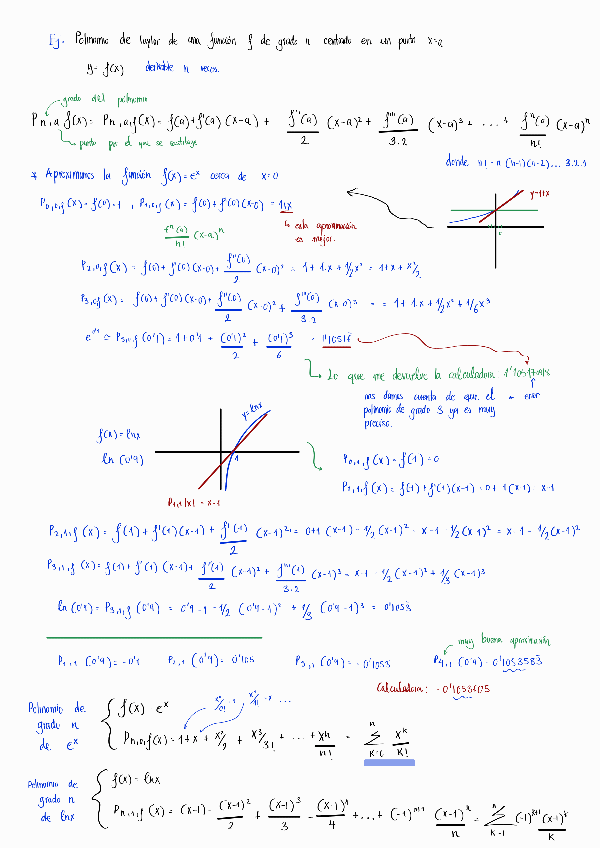 Ej. Polinomio de taylor de una función f de grado n centrado en un punto x=a
y= f(x) derivable n veces.
grado del polinomio
Pn,a f(x)= Pn,a,f(x)= f(a)+f'(a)(x-a) + f''(a)/2 (x-a)² + f'''(a)/3·2 (x-a)³ + ... + fⁿ(a)/n! (x-a)ⁿ
punto por el que se sustituye
donde n! = n (n-1)(n-2)... 3·2·1
* Aproximamos la función f(x)=eˣ cerca de x=0
P0,0,f(x)= f(0)=1 , P1,0,f(x) = f(0)+f'(0)(x-0) = 1+x
y=1+x
↳ esta aproximación es mejor.
fⁿ(a)/n! (x-a)ⁿ
P2,0,f(x) = f(0)+f'(0)(x-0)+ f''(0)/2 (x-0)² = 1+1·x+1/2x² = 1+x+x²/2
P3,0,f(x) = f(0)+f'(0)(x-0)+ f''(0)/2 (x-0)² + f'''(0)/3·2 (x-0)³ = 1+1·x+1/2x²+1/6x³
P3,0,f(0'1)=1+0'1 + (0'1)²/2 + (0'1)³/6
Lo que me devuelve la calculadora
nos damos cuenta de que el ← error
polinomio de grado 3 ya es muy
preciso.
y=lnx
f(x)=lnx
ln (0'9)
1
P1,1(x) = x-1
P0,1,f(x)= f(1)=0
P1,1,f(x)= f(1)+f'(1)(x-1)= 0+1(x-1) = x-1
P2,1,f(x)= f(1)+f'(1)(x-1)+ f''(1)/2 (x-1)² = 0+1(x-1)-1/2(x-1)² = x-1-1/2(x-1)² = x-1-1/2(x-1)²
P3,1,f(x)= f(1)+f'(1)(x-1)+ f''(1)/2 (x-1)² + f'''(1)/3·2 (x-1)³ = x-1-1/2(x-1)²+1/3(x-1)³
ln(0'9)= P3,1,f(0'9) = 0'9-1-1/2(0'9-1)² + 1/3(0'9-1)³ = 0'1053
muy buena aproximación
P1,1(0'9)=-0'1 (0'9)=-0'105 P3,1(0'9)=-0'1053 P4,1(0'9)
Calculadora:
Polinomio de grado n de eˣ
f(x) = eˣ
Pn,0,f(x)= 1+x+x²/2 + x³/3! + ... + xⁿ/n! = Σ n k=0 xᵏ/k!
Polinomio de grado n de lnx
f(x)= lnx
Pn,1,f(x)= (x-1) - (x-1)²/2 + (x-1)³/3 - (x-1)⁴/4 + ... + (-1)ⁿ⁺¹ (x-1)ⁿ/n = Σ n k=1 (-1)ᵏ⁺¹ (x-1)ᵏ/k